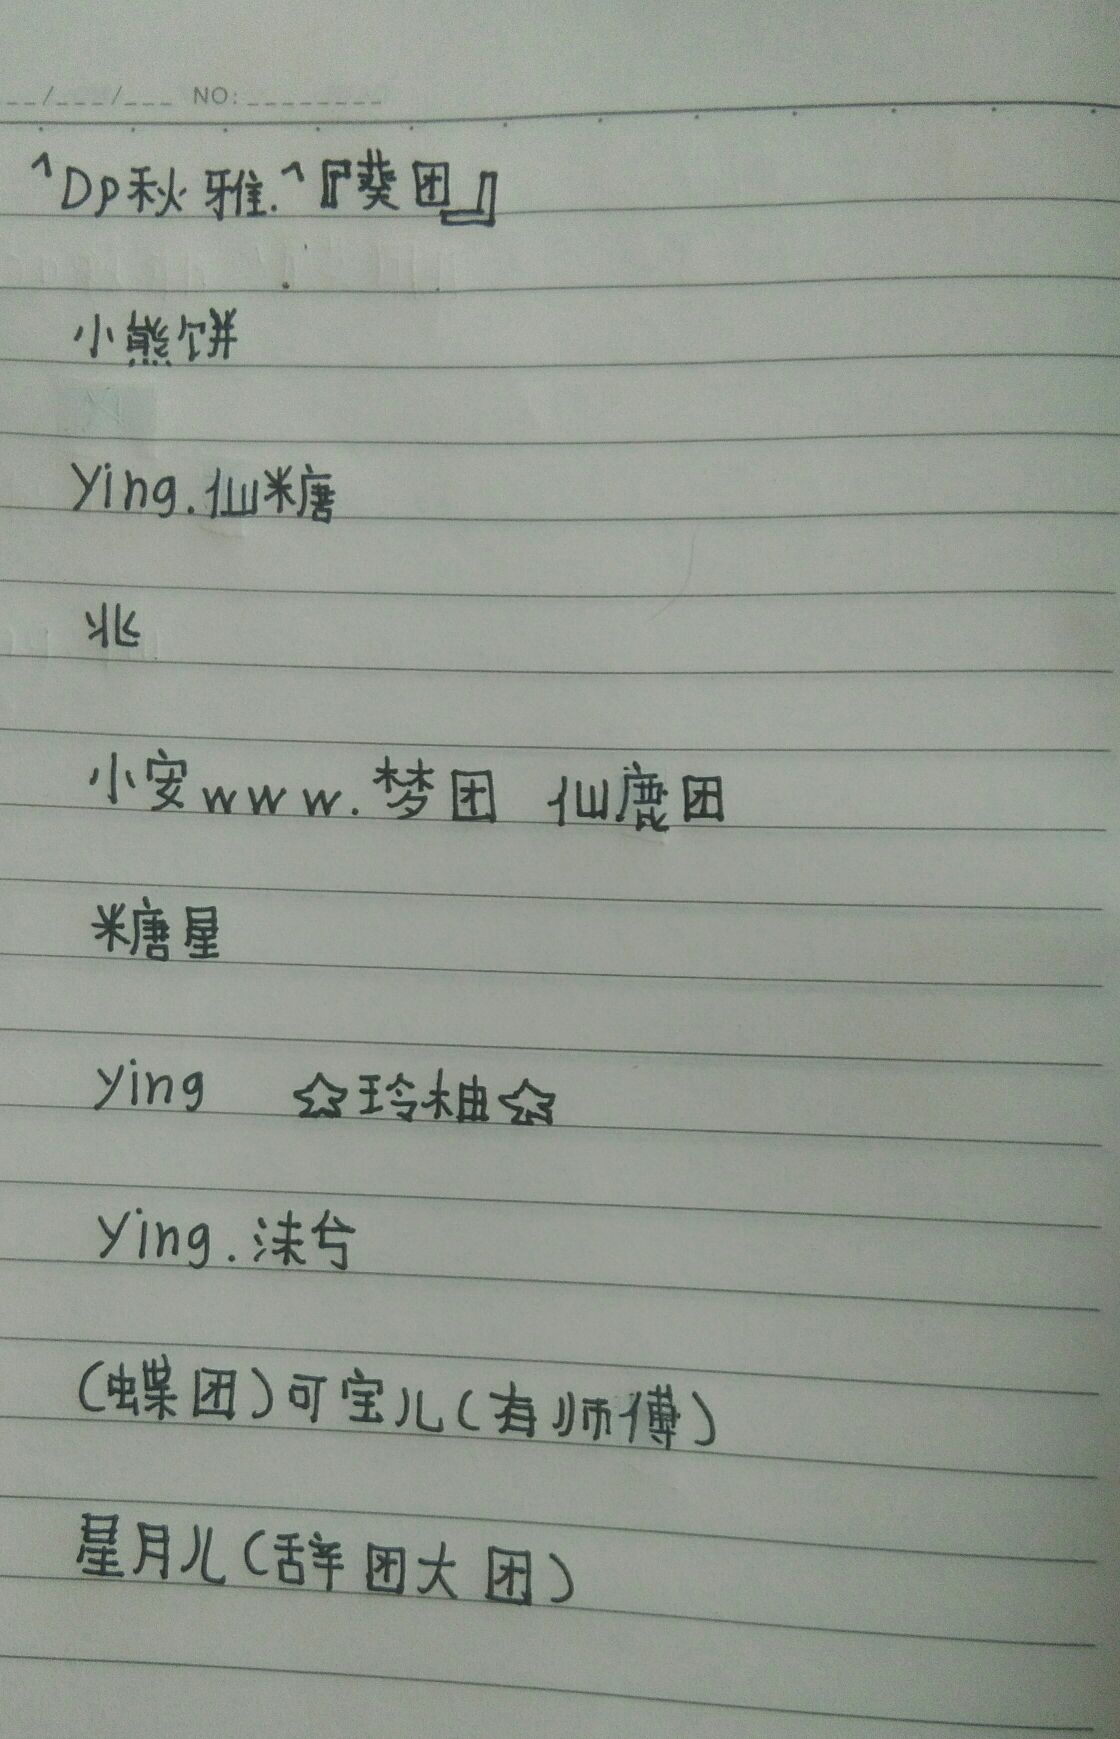 __/___/___ NO:________
^Dp秋雅.^『葵团』
小熊饼
Ying.仙糖
兆
小安www.梦团 仙鹿团
糖星
Ying ☆玲柚☆
Ying.沫兮
(蝶团)可宝儿(有师傅)
星月儿(辞团大团)